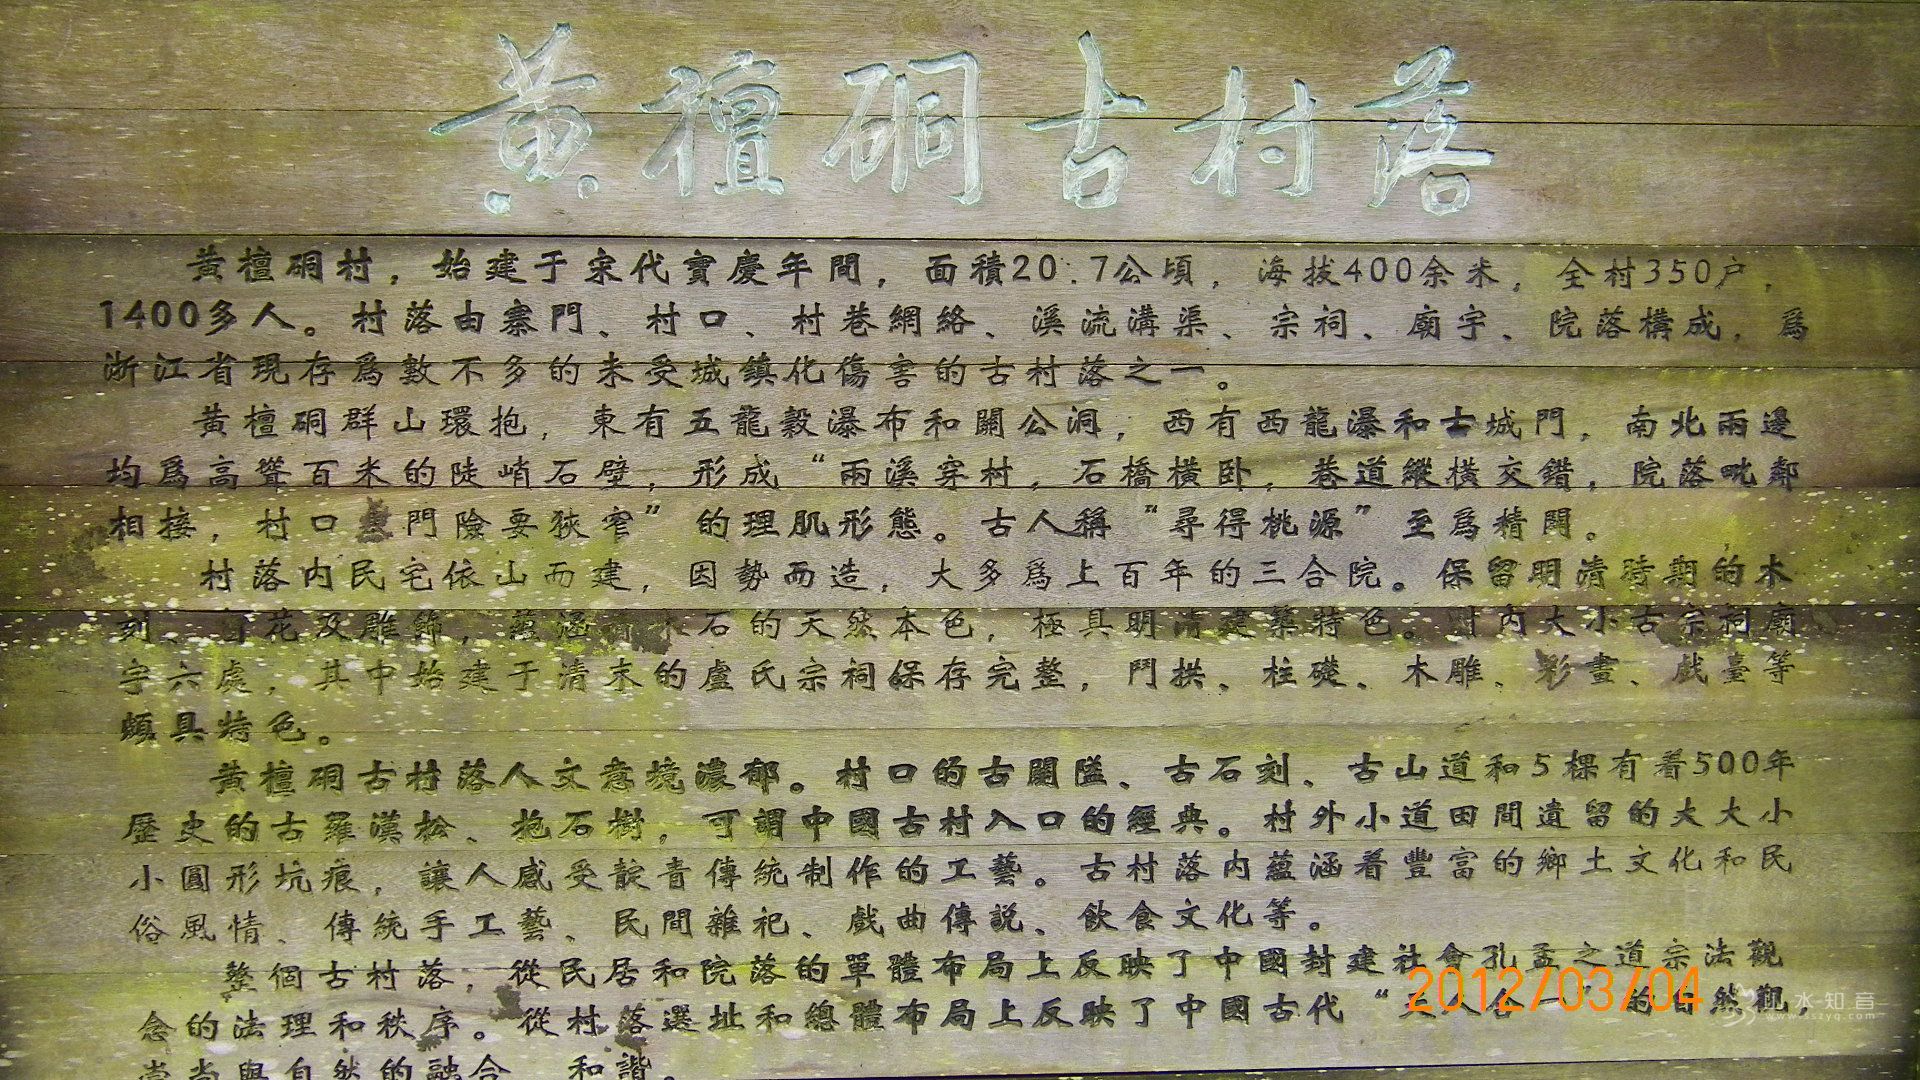 黄檀硐古村落
黄檀硐村，始建于宋代寶慶年間，面積20.7公頃，海拔400余米，全村350户，
1400多人。村落由寨門、村口、村巷網絡、溪流溝渠、宗祠、廟宇、院落構成，爲
浙江省現存爲數不多的未受城鎮化傷害的古村落之一。
黄檀硐群山環抱，東有五龍穀瀑布和關公洞，西有西龍瀑和古城門，南北兩邊
均爲高聳百米的陡峭石壁，形成“兩溪穿村，石橋橫卧，巷道縱橫交錯，院落毗鄰
相接，村口 門險要狹窄”的理肌形態。古人稱“尋得桃源”至爲精闢。
村落内民宅依山而建，因勢而造，大多爲上百年的三合院。保留明清時期的木
刻、 花及雕飾，蘊涵 木石的天然本色，極具明清建築特色。村内大小古宗祠廟
宇六處，其中始建于清末的盧氏宗祠保存完整，鬥拱、柱礎、木雕、彩畫、戲臺等
頗具特色。
黄檀硐古村落人文意境濃郁。村口的古關隘、古石刻、古山道和5棵有着500年
歷史的古羅漢松、抱石樹，可謂中國古村入口的經典。村外小道田間遺留的大大小
小圓形坑痕，讓人感受靛青傳統制作的工藝。古村落内蘊涵着豐富的鄉土文化和民
俗風情、傳統手工藝、民間雜祀、戲曲傳説、飲食文化等。
整個古村落，從民居和院落的單體布局上反映了中國封建社會孔孟之道宗法觀
念的法理和秩序。從村落選址和總體布局上反映了中國古代“天人合一”的自然觀，
崇尚與自然的融合、和諧。
2012/03/04
山水知音
www.sszyq.com